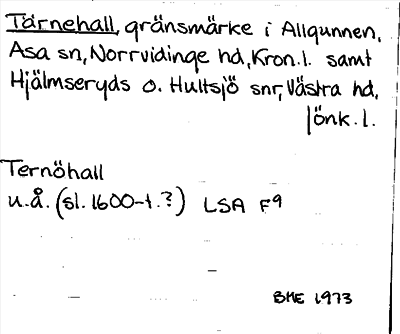 Tärnehall, gränsmärke i Allgunnen,
Asa sn, Norrvidinge hd, Kron.l. samt
Hjälmseryds o. Hultsjö snr, Västra hd,
Jönk.l.
Ternöhall
u.å. (sl. 1600-t.?) LSA F9
BME 1973